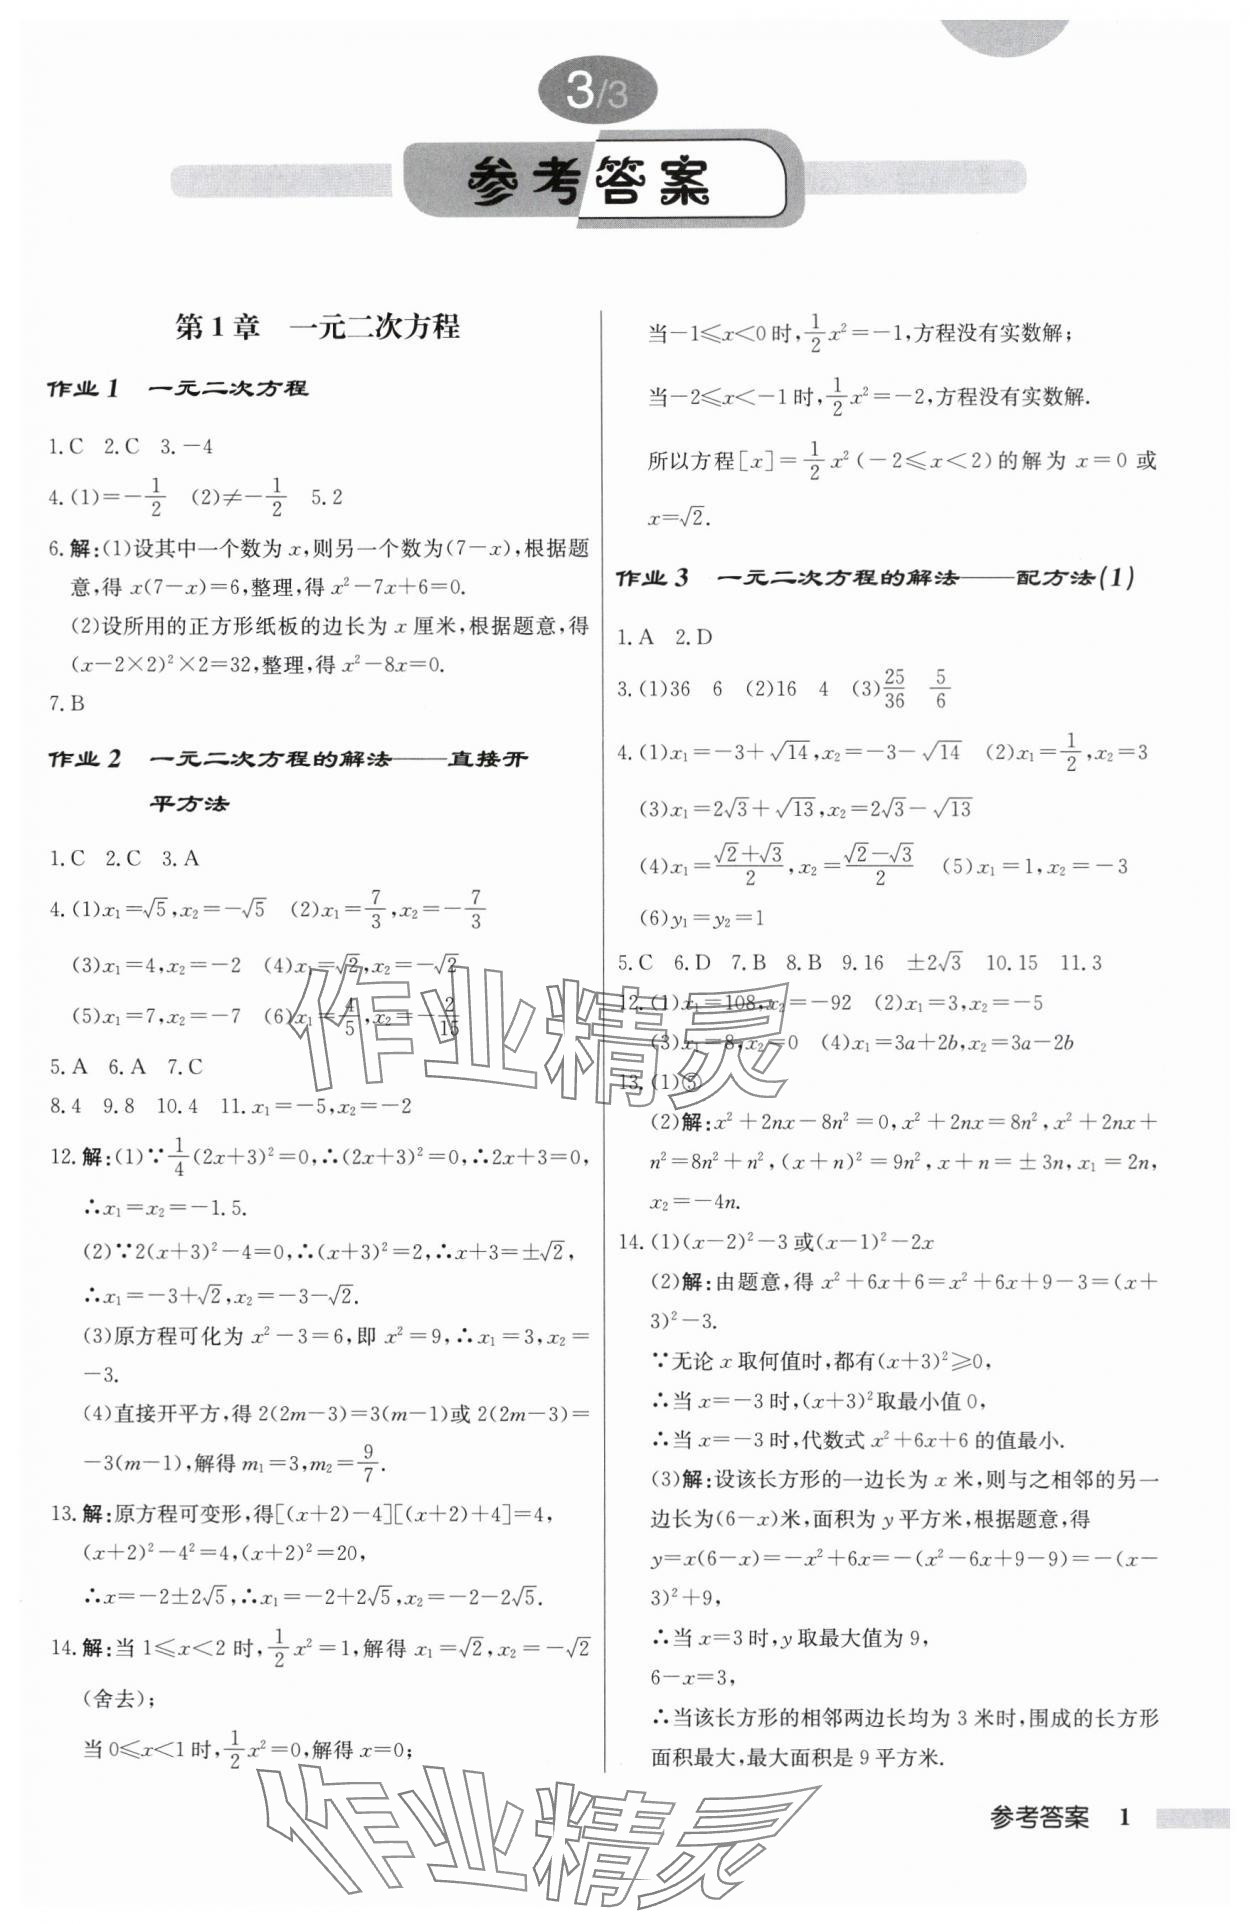 3/3
参考答案
第1章　一元二次方程
作业1　一元二次方程
1.C　2.C　3.－4
4.(1)＝－1/2　(2)≠－1/2　5.2
6.解:(1)设其中一个数为 x,则另一个数为(7－x),根据题
意,得 x(7－x)＝6,整理,得 x²－7x＋6＝0.
(2)设所用的正方形纸板的边长为 x 厘米,根据题意,得
(x－2×2)²×2＝32,整理,得 x²－8x＝0.
7.B
作业2　一元二次方程的解法——直接开
平方法
1.C　2.C　3.A
4.(1)x₁＝√5,x₂＝－√5　(2)x₁＝7/3,x₂＝－7/3
(3)x₁＝4,x₂＝－2　(4)x₁＝√2,x₂＝－√2
(5)x₁＝7,x₂＝－7　(6)x₁＝4/5,x₂＝－2/15
5.A　6.A　7.C
8.4　9.8　10.4　11.x₁＝－5,x₂＝－2
12.解:(1)∵1/4(2x＋3)²＝0,∴(2x＋3)²＝0,∴2x＋3＝0,
∴x₁＝x₂＝－1.5.
(2)∵2(x＋3)²－4＝0,∴(x＋3)²＝2,∴x＋3＝±√2,
∴x₁＝－3＋√2,x₂＝－3－√2.
(3)原方程可化为 x²－3＝6,即 x²＝9,∴x₁＝3,x₂＝
－3.
(4)直接开平方,得 2(2m－3)＝3(m－1)或 2(2m－3)＝
－3(m－1),解得 m₁＝3,m₂＝9/7.
13.解:原方程可变形,得[(x＋2)－4][(x＋2)＋4]＝4,
(x＋2)²－4²＝4,(x＋2)²＝20,
∴x＝－2±2√5,∴x₁＝－2＋2√5,x₂＝－2－2√5.
14.解:当 1≤x＜2 时,1/2x²＝1,解得 x₁＝√2,x₂＝－√2
(舍去);
当 0≤x＜1 时,1/2x²＝0,解得 x＝0;
当－1≤x＜0 时,1/2x²＝－1,方程没有实数解;
当－2≤x＜－1 时,1/2x²＝－2,方程没有实数解.
所以方程[x]＝1/2x²(－2≤x＜2)的解为 x＝0 或
x＝√2.
作业3　一元二次方程的解法——配方法(1)
1.A　2.D
3.(1)36　6　(2)16　4　(3)25/36　5/6
4.(1)x₁＝－3＋√14,x₂＝－3－√14　(2)x₁＝1/2,x₂＝3
(3)x₁＝2√3＋√13,x₂＝2√3－√13
(4)x₁＝(√2＋√3)/2,x₂＝(√2－√3)/2　(5)x₁＝1,x₂＝－3
(6)y₁＝y₂＝1
5.C　6.D　7.B　8.B　9.16　±2√3　10.15　11.3
12.(1)x₁＝108,x₂＝－92　(2)x₁＝3,x₂＝－5
(3)x₁＝8,x₂＝0　(4)x₁＝3a＋2b,x₂＝3a－2b
13.(1)⑤
(2)解:x²＋2nx－8n²＝0,x²＋2nx＝8n²,x²＋2nx＋
n²＝8n²＋n²,(x＋n)²＝9n²,x＋n＝±3n,x₁＝2n,
x₂＝－4n.
14.(1)(x－2)²－3 或(x－1)²－2x
(2)解:由题意,得 x²＋6x＋6＝x²＋6x＋9－3＝(x＋
3)²－3.
∵无论 x 取何值时,都有(x＋3)²≥0,
∴当 x＝－3 时,(x＋3)²取最小值 0,
∴当 x＝－3 时,代数式 x²＋6x＋6 的值最小.
(3)解:设该长方形的一边长为 x 米,则与之相邻的另一
边长为(6－x)米,面积为 y 平方米,根据题意,得
y＝x(6－x)＝－x²＋6x＝－(x²－6x＋9－9)＝－(x－
3)²＋9,
∴当 x＝3 时,y 取最大值为 9,
6－x＝3,
∴当该长方形的相邻两边长均为 3 米时,围成的长方形
面积最大,最大面积是 9 平方米.
作业精灵
作业精灵
参考答案　1